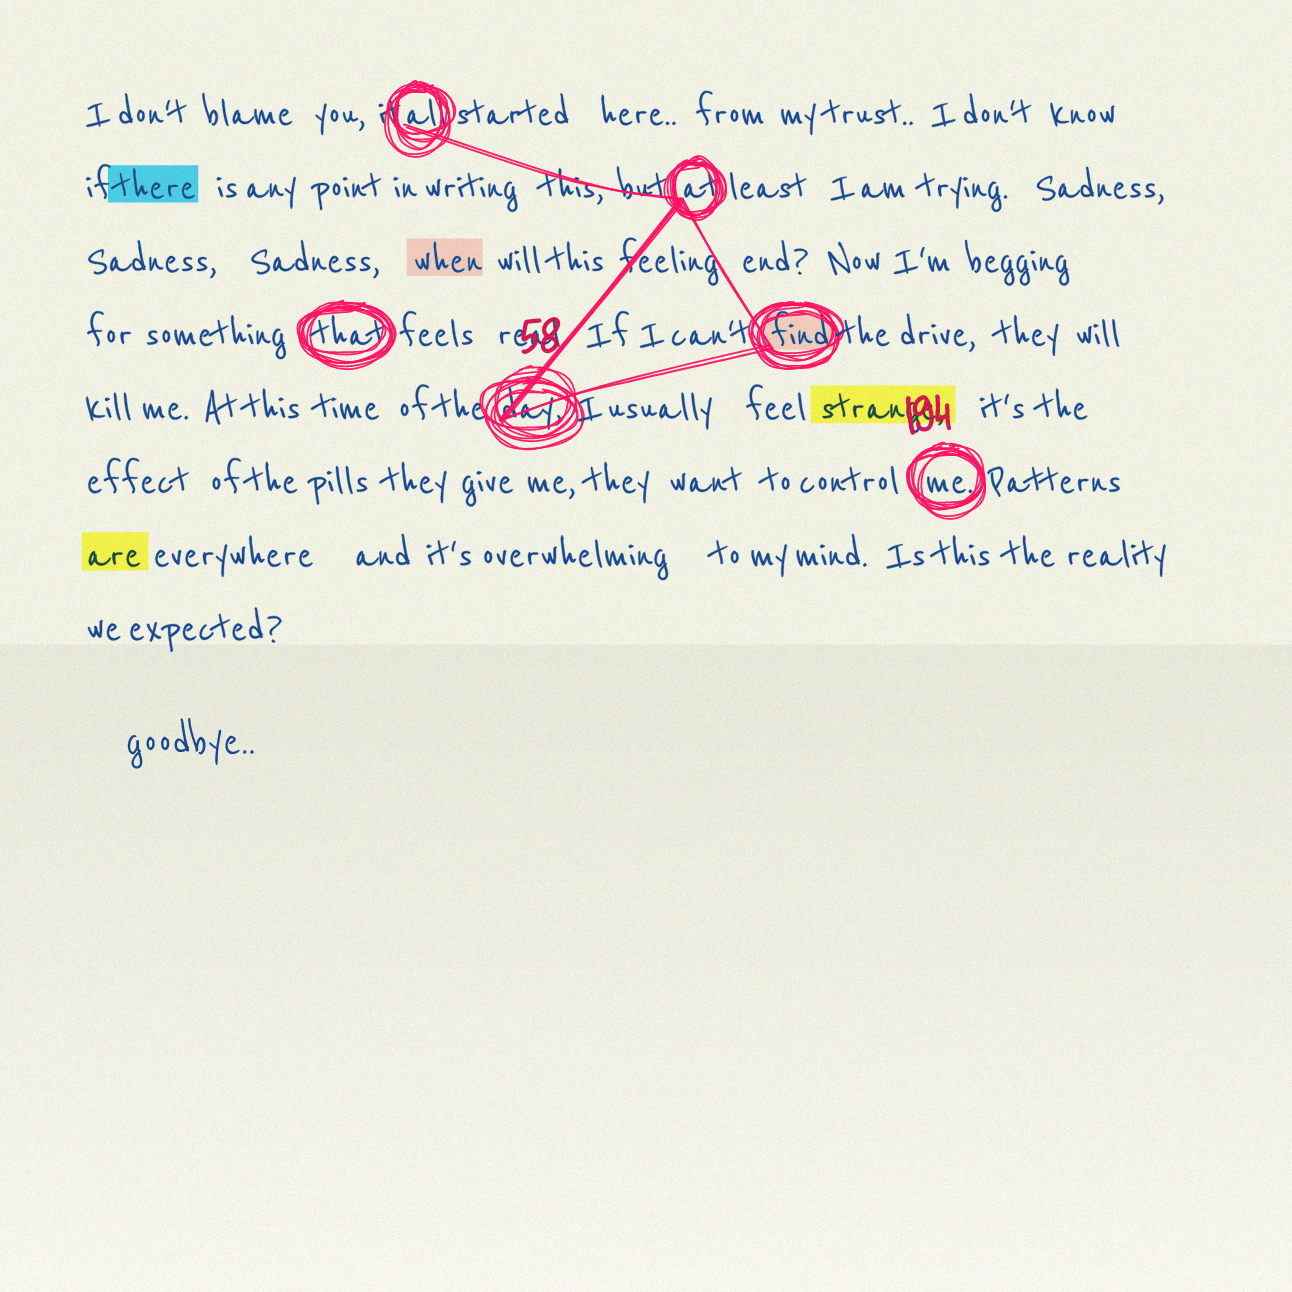 I don't blame you, it all started here.. from my trust.. I don't know
if there is any point in writing this, but at least I am trying. Sadness,
Sadness, Sadness, when will this feeling end? Now I'm begging
for something that feels 58 If I can't find the drive, they will
kill me. At this time of the day, I usually feel it's the
effect of the pills they give me, they want to control me. Patterns
are everywhere and it's overwhelming to my mind. Is this the reality
we expected?
goodbye..